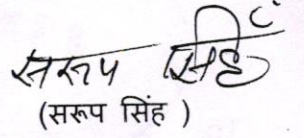 सरूप सिंह
(सरूप सिंह )